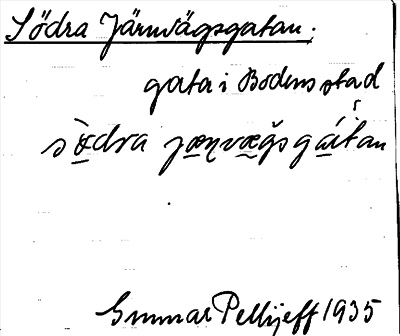 Södra Järnvägsgatan.
gata i Bodens stad
södra
Gunnar Pellijeff 1935